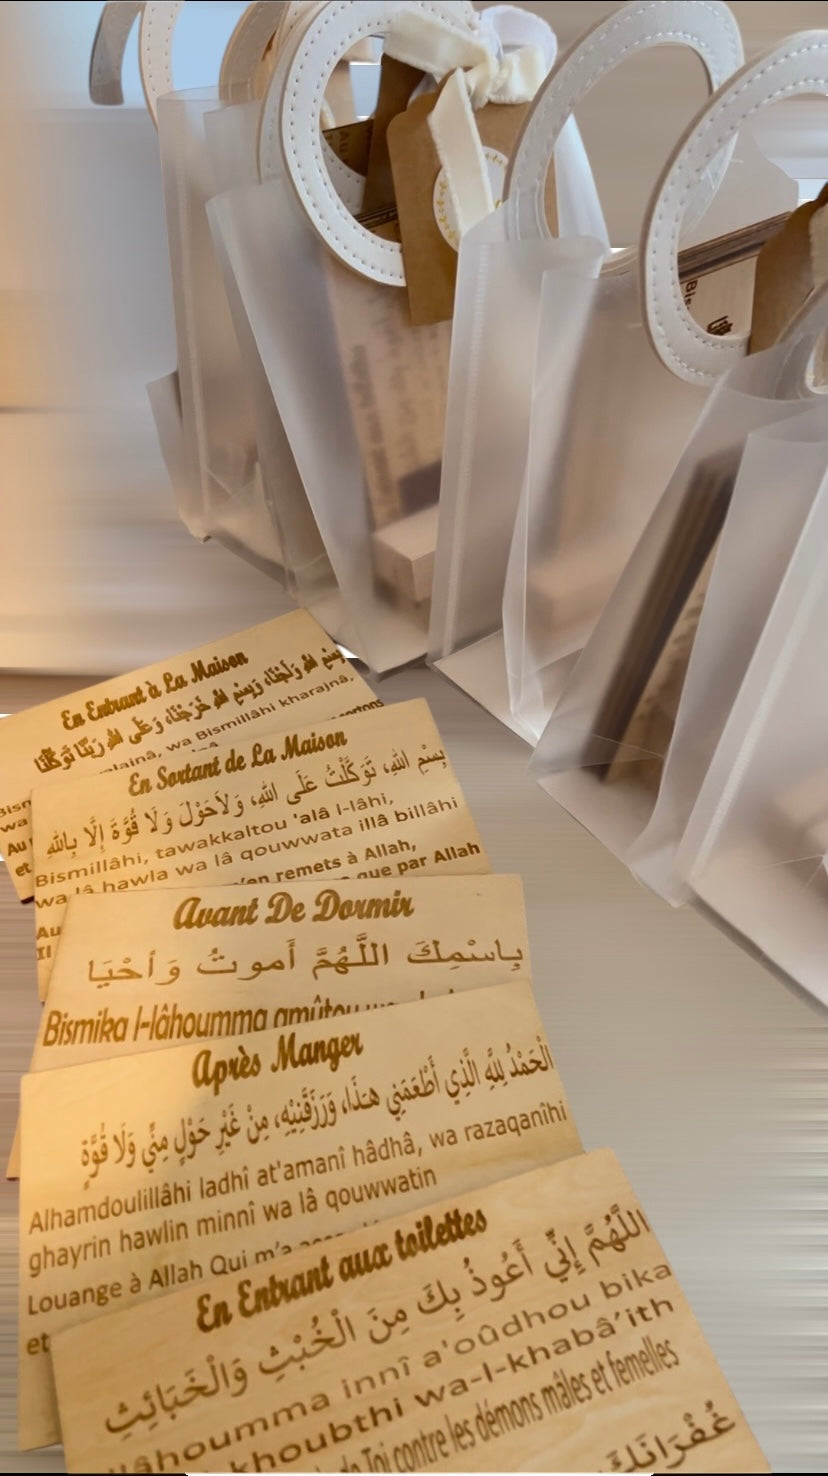 En Entrant à La Maison
بِسْمِ اللهِ وَلَجْنَا، وَبِسْمِ اللهِ خَرَجْنَا، وَعَلَى اللهِ رَبِّنَا تَوَكَّلْنَا
wa Bismillâhi kharajnâ,
Bism
wa
Au
et
En Sortant de La Maison
بِسْمِ اللهِ، تَوَكَّلْتُ عَلَى اللهِ، وَلاَحَوْلَ وَلَا قُوَّةَ إِلَّا بِاللهِ
Bismillâhi, tawakkaltou 'alâ l-lâhi,
wa lâ hawla wa lâ qouwwata illâ billâhi
remets à Allah,
que par Allah
Au
Il
Avant De Dormir
بِاسْمِكَ اللَّهُمَّ أَموتُ وَأَحْيَا
Bismika l-lâhoumma amûtou
Après Manger
الْحَمْدُ لِلَّهِ الَّذِي أَطْعَمَنِي هَذَا، وَرَزَقَنِيْهِ، مِنْ غَيْرِ حَوْلٍ مِنِّي وَلَا قُوَّةٍ
Alhamdoulillâhi ladhî at'amanî hâdhâ, wa razaqanîhi
ghayrin hawlin minnî wa lâ qouwwatin
Louange à Allah Qui m'a
et
En Entrant aux toilettes
اللَّهُمَّ إِنِّي أَعُوذُ بِكَ مِنَ الْخُبْثِ وَالْخَبَائِثِ
lâhoumma innî a'oûdhou bika
khoubthi wa-l-khabâ'ith
de Toi contre les démons mâles et femelles
غُفْرَانَكَ